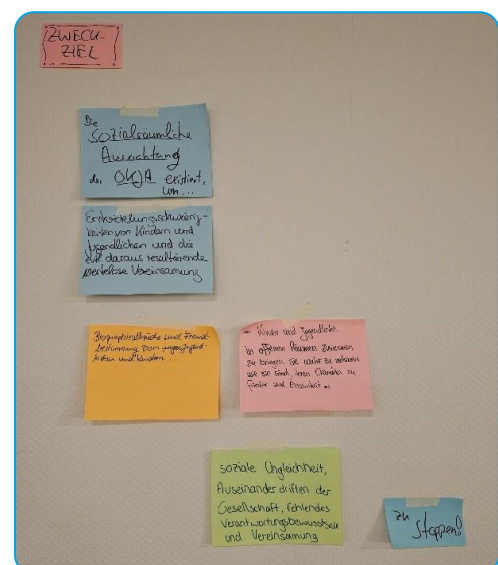 ZWECK-
ZIEL
Die
Sozialräumliche
Ausrichtung
der OKJA existiert,
um...
Entwicklungsschwierig-
keiten von Kindern und
Jugendlichen und die
evtl. daraus resultierende
Vereinsamung
Biographiebrüche und Fremd-
bestimmung von jugend-
lichen und Kindern...
Kinder und Jugendliche
in offenen Räumen zusammen
zu bringen, sie wahr zu nehmen
wie sie sind, ihren Charakter zu
und Einsamkeit
soziale Ungleichheit,
Auseinanderdriften der
Gesellschaft, fehlendes
Verantwortungsbewusstsein
und Vereinsamung
zu
stoppen!